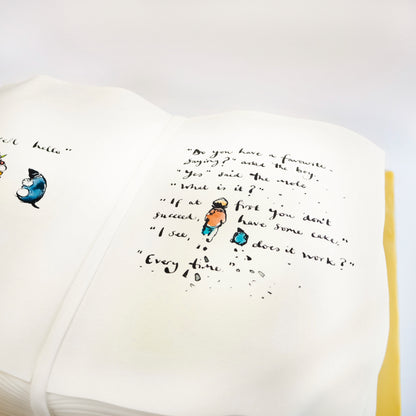 hello"
"Do you have a favourite
saying?" asked the boy.
"Yes" said the mole
"What is it?"
"If at first you don't
succeed, have some cake."
"I see, does it work?"
"Every time"